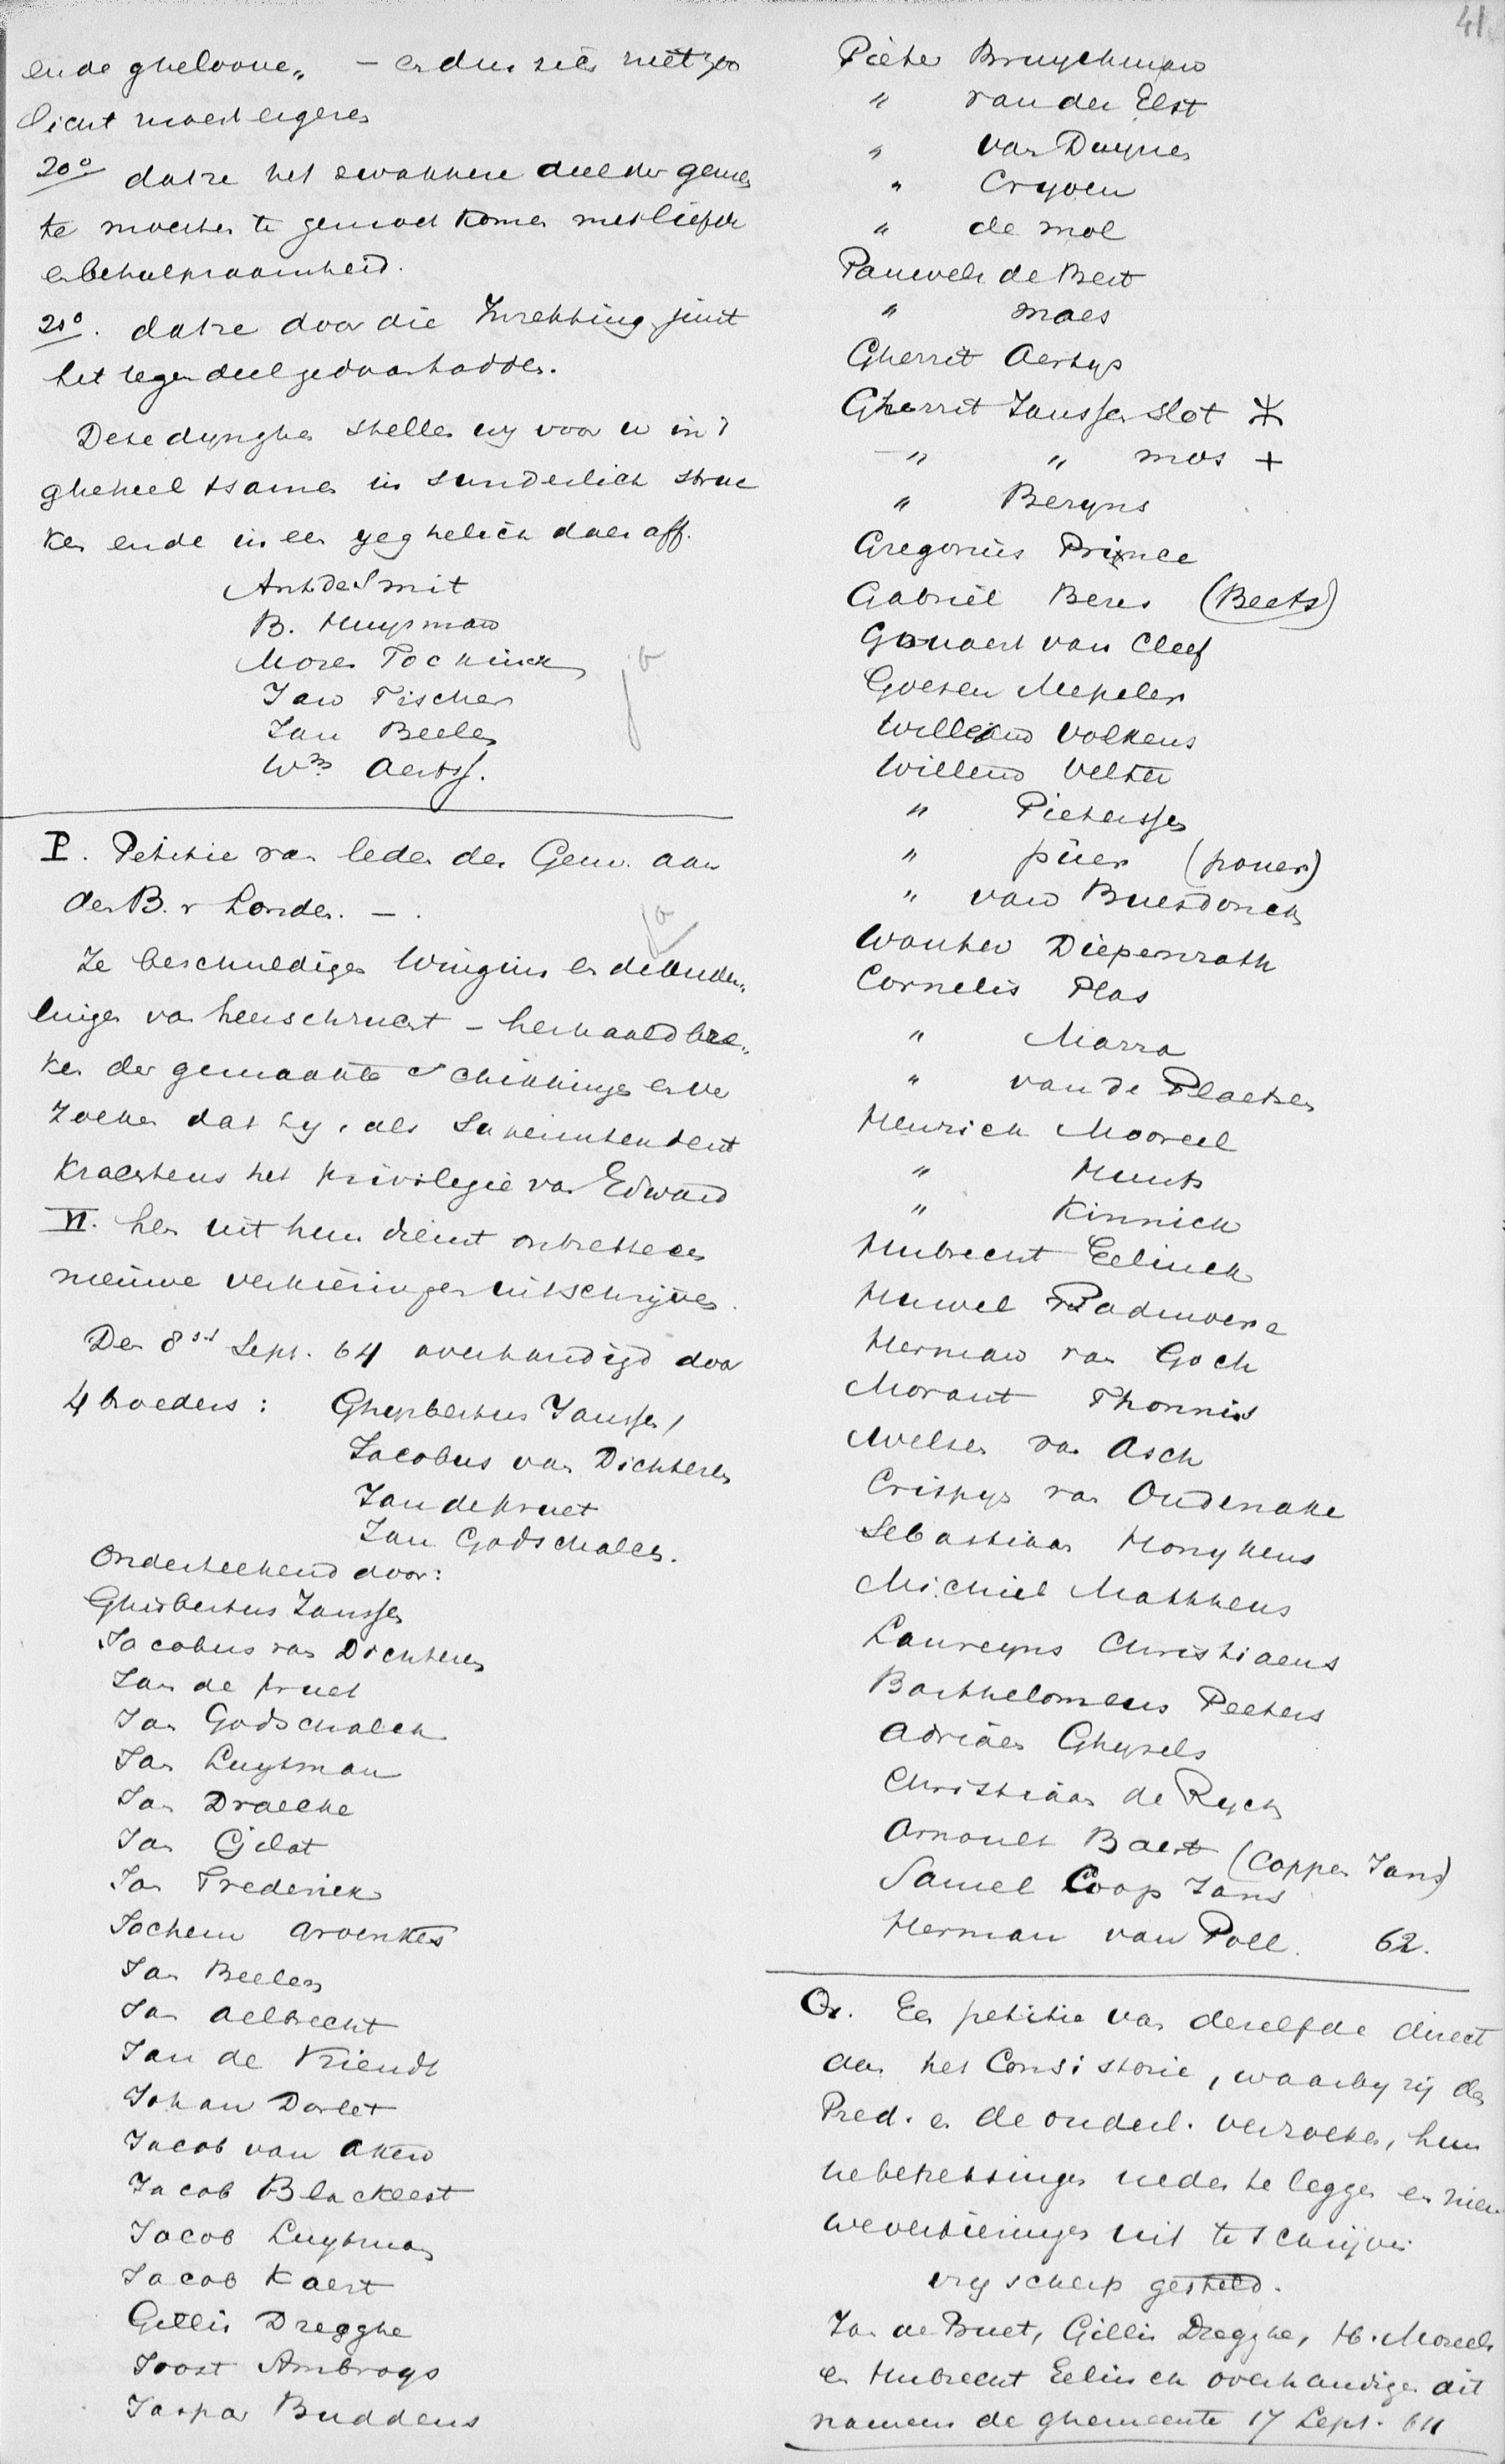 41
ende ghelove„ – en dus zich niet zoo
licht moest ergeren
20° dat ze het zwakkere deel der gemeen
te moesten te gemoet komen met liefde
en behulpzaamheid.
21°. dat ze door die Intrekking juist
het tegendeel gedaan hadden.
Dese dynghen stellen wy voor u in't
gheheel tsamen in sunderlich struc
ken ende in een yeghelick daer aff.
Ant de Smit
B. Huysman
Moses Fockinck
Jan Fischer
Jan Beelen
Wm Aertss.
ja
P. Petitie van leden der Gem. aan
den B. v Londen. – .
ja
Ze beschuldigen Wingius en de ouder„
lingen van heerschzucht – herhaald bre„
ken der gemaakte schikkingen en ver
zoeken dat hy, als Superintendent
krachtens het privilegie van Edward
VI. hen uit hun dienst ontzette en
nieuwe verkiezingen uitschrijve.
Den 8st Sept. 64 overhandigd door
4 broeders: Ghysbertus Janssen,
Jacobus van Dichteren
Jan de Pruet
Jan Godschalck.
Onderteekend door:
Ghisbertus Janssen
Jacobus van Dichteren
Jan de Pruet
Jan Godschalck
Jan Luytman
Jan Draecke
Jan Gilot
Jan Frederick
Jochem Aroenkes
Jan Beelen
Jan Aelbrecht
Jan de Vriendt
Johan Dorlet
Jacob van Aken
Jacob Blackeest
Jacob Luytman
Jacob Kaert
Gillis Dregghe
Joost Ambroys
Jaspar Buddens
Pieter Bruychman
" van der Elst
" van Duynen
" Cryoen
" de Mol
Pauwels de Bert
" Maes
Gherrit Aertys
Gherrit Janssen Slot
" " Mos +
" Beryns
Gregorius Prince
Gabriel Beres (Beets)
van Cleef
Goesen Mepeler
Willem Volkens
Willem Velter
" Pieterssen
" püer (pouer)
" van Buesdonck
Wouter Diepenrath
Cornelis Plas
" Marra
" van de Plaetsen
Henrick Moreel
" Munts
" Kinnick
Hubrecht Eelinck
Huwel Radmoere
Herman van Goch
Morant Thonnis
Melser van Asch
Crispyn van Oudenake
Sebastiaan Monykens
Michiel Matheeus
Laureyns Christiaens
Barthelomeus Peeters
Adriaen Ghysels
Christiaan de Rycke
Arnoult Baert
Samel Coop Jans (Coppen Jans)
Herman van Poll. 62.
Q. Een petitie van dezelfde direct
aan het Consistorie, waarby zij den
Pred. en de ouderl. verzoeken, hun
betrekkingen neder te leggen en nieu
we verkiezingen uit te schrijven
vry scherp gesteld.
Jan de Pruet, Gillis Dregghe, H. Moreels
en Hubrecht Eelinck overhandigen dit
namens de ghemeente 17 Sept. 64